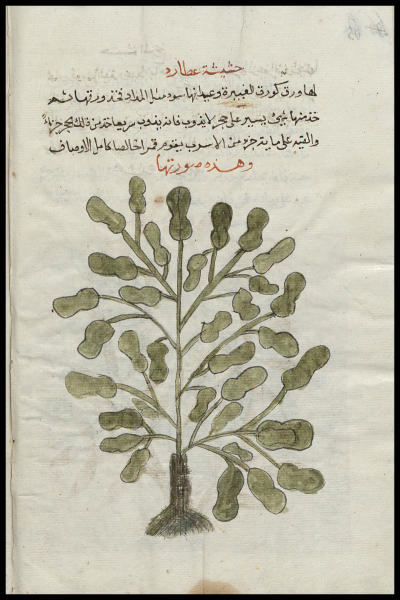 حشيشة عطارد
لها ورق كورق الغبيرة وعيدانها سود مثل المداد فخذ ورقها ثم
خذ منها بشئ يسير على حجر لا يذوب فانه يذوب سريعا خذ من ذلك الحجر جزءاً
والقيه على ماية جزء من الاسرب يقوم قمرا خالصا كامل الاوصاف
وهذه صورتها